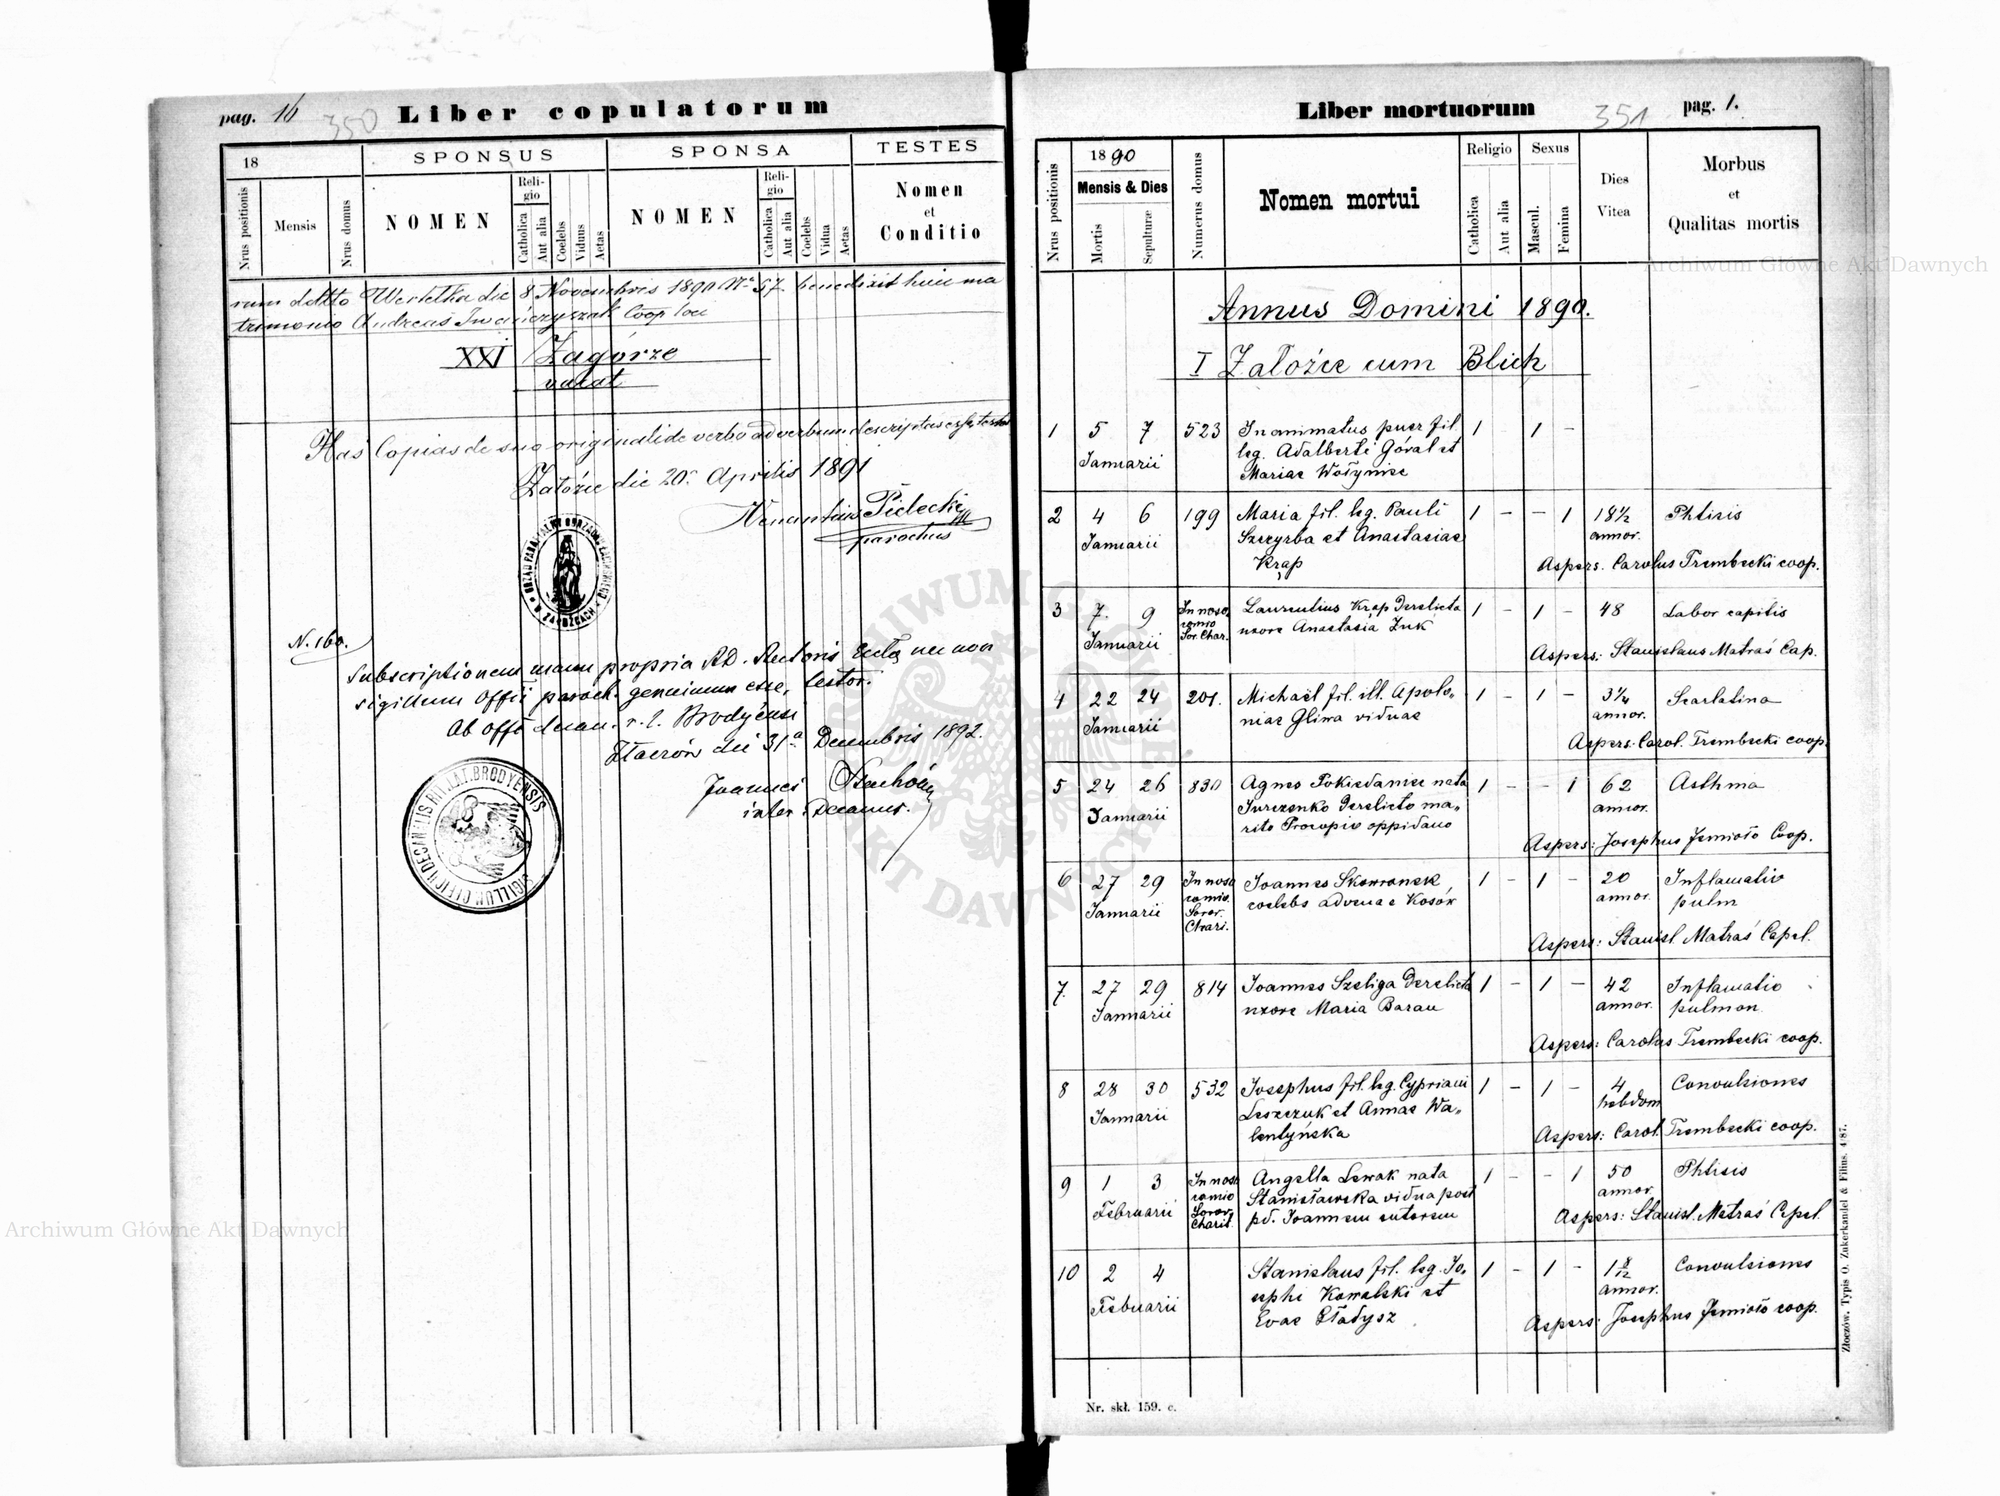 pag. 16
350
Liber copulatorum
18
SPONSUS
SPONSA
TESTES
Nrus positionis
Mensis
Nrus domus
NOMEN
Reli-
gio
Catholica
Aut alia
Coelebs
Viduus
Aetas
NOMEN
Reli-
gio
Catholica
Aut alia
Coelebs
Vidua
Aetas
Nomen
et
Conditio
rum detto Wertelka die 8 Novembris 1890 Nr 57 benedixit huic ma
trimonio Andreas Iwańczyszak Coop loci
XXI Zagórze
vacat
Has Copias de suo originali de verbo ad verbum descriptas esse testor
Załoźce die 20. Aprilis 1891
Venantius Pilecki
parochus
URZĄD PARAFIALNY OBRZĄDKU ŁACIŃSKIEGO
W ZAŁOŹCACH
N. 160.
Subscriptionem manu propria AD. Rectoris Eccl nec non
sigillum Officii paroch. genuinum esse, testor.
Ab offo decan. r. l. Brodyensi
die 31a Decembris 1892.
Joannes
inter. Decanus.
SIGILLUM OFFICII DECANALIS RIT. LAT. BRODYENSIS
Liber mortuorum
351
pag. 1.
Nrus positionis
1890
Mensis & Dies
Mortis
Sepulturæ
Numerus domus
Nomen mortui
Religio
Catholica
Aut alia
Sexus
Mascul.
Femina
Dies
Vitea
Morbus
et
Qualitas mortis
Annus Domini 1890.
I Załoźce cum Blich
1 5 7 523 Inanimatus puer fil. 1 1 -
Januarii leg. Adalberti Góral et
Mariae Wołynice
2 4 6 199 Maria fil. leg. Pauli 1 - - 1 18 1/2 Phtisis
Januarii Szczyrba et Anastasiae annor.
Krąp Aspers. Carolus Trembecki coop.
3 7. 9 In noso Laurentius Krąp derelicta 1 - 1 - 48 Labor capitis
comio uxore Anastasia Żuk
Januarii Sor. Char.
Aspers: Stanislaus Matraś Cap.
4 22 24 201. Michael fil. ill. Apolo 1 - 1 - 3 1/4 Scarlatina
Januarii niae Gliwa viduae annor.
Aspers: Carol. Trembecki coop.
5 24 26 830 Agnes Pokiedanice nata 1 - - 1 62 Asthma
Januarii Jurczenko derelicto ma annor.
rito Procopio oppidano
Aspers: Josephus Jemioło Coop.
6 27 29 In noso Joannes Skowronek 1 - 1 - 20 Inflamatio
Januarii comio. coelebs advena e Kosów annor. pulm
Soror.
Chari.
Aspers: Stanisl. Matraś Capel.
7. 27 29 814 Joannes Szeliga derelicta 1 - 1 - 42 Inflamatio
Januarii uxore Maria Baran annor. pulmon
Aspers: Carolus Trembecki coop.
8 28 30 532 Josephus fil. leg. Cypriani 1 - 1 - 4 Convulsiones
Januarii Leszczuk et Annae Wa hebdom
lentyńska Aspers: Carol. Trembecki coop.
9 1 3 In noso Angella Lewak nata 1 - - 1 50 Phtisis
Februarii comio Stanisławska vidua post annor.
Soror. pd. Joannem sutorem
Charit. Aspers: Stanisl. Matraś Capel.
10 2 4 Stanislaus fil. leg. Jo 1 - 1 - 1 8/12 Convulsiones
Februarii sephi Kowalski et annor.
Evae Gładysz Aspers: Josephus Jemioło coop.
Złoczów. Typis O. Zukerkandel & Filius. 4/87.
Nr. skł. 159. c.
Archiwum Główne Akt Dawnych
Archiwum Główne Akt Dawnych
ARCHIWUM GŁÓWNE AKT DAWNYCH